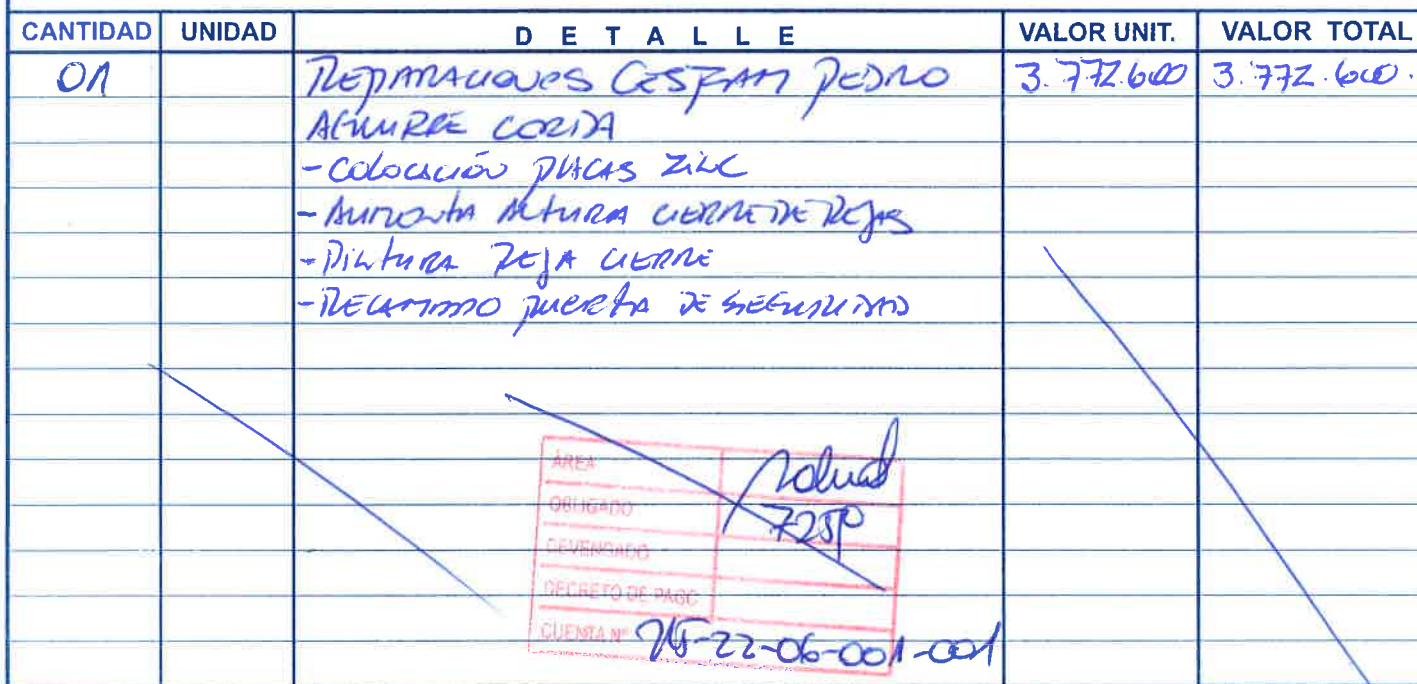 CANTIDAD UNIDAD DETALLE VALOR UNIT. VALOR TOTAL
01 REPARACIONES CESFAM PEDRO 3.772.600 3.772.600.
AGUIRRE CERDA
- COLOCACIÓN PLACAS ZINC
- AUMENTA ALTURA CIERRE DE REJAS
- PINTURA REJA CIERRE
- RECAMBIO PUERTA DE SEGURIDAD
ÁREA Salud
OBLIGADO
DEVENGADO
DECRETO DE PAGO
CUENTA Nº 215-22-06-001-001